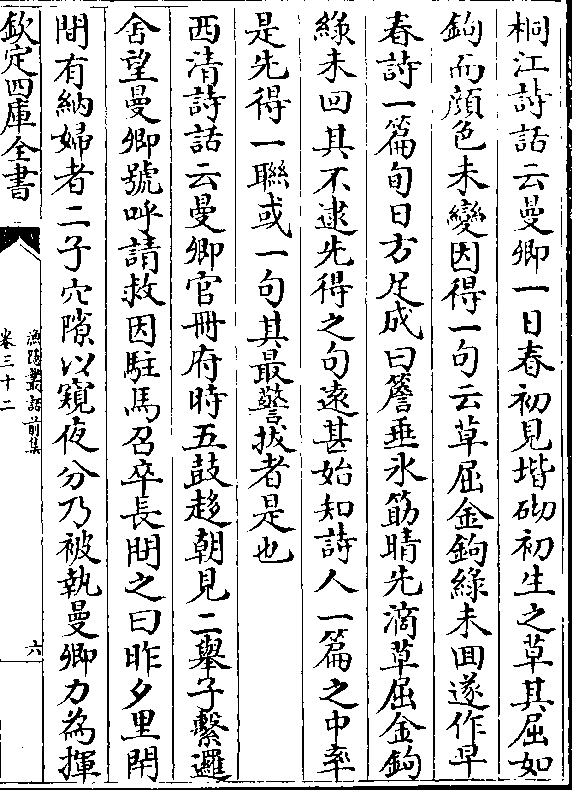 桐江詩話云曼卿一日春初見堦砌初生之草其屈如
鉤而顔色未變因得一句云草屈金鉤綠未回遂作早
春詩一篇旬日方足成曰簷垂氷筯晴先滴草屈金鉤
綠未回其不逮先得之句逺甚始知詩人一篇之中率
是先得一聯或一句其最警拔者是也
西清詩話云曼卿官冊府時五鼓趍朝見二舉子繫邏
舎望曼卿號呼請救因駐馬召卒長問之曰昨夕里閈
間有納婦者二子穴隙以窺夜分乃被執曼卿力為揮
欽定四庫全書
漁隠叢話前集
卷三十二
六